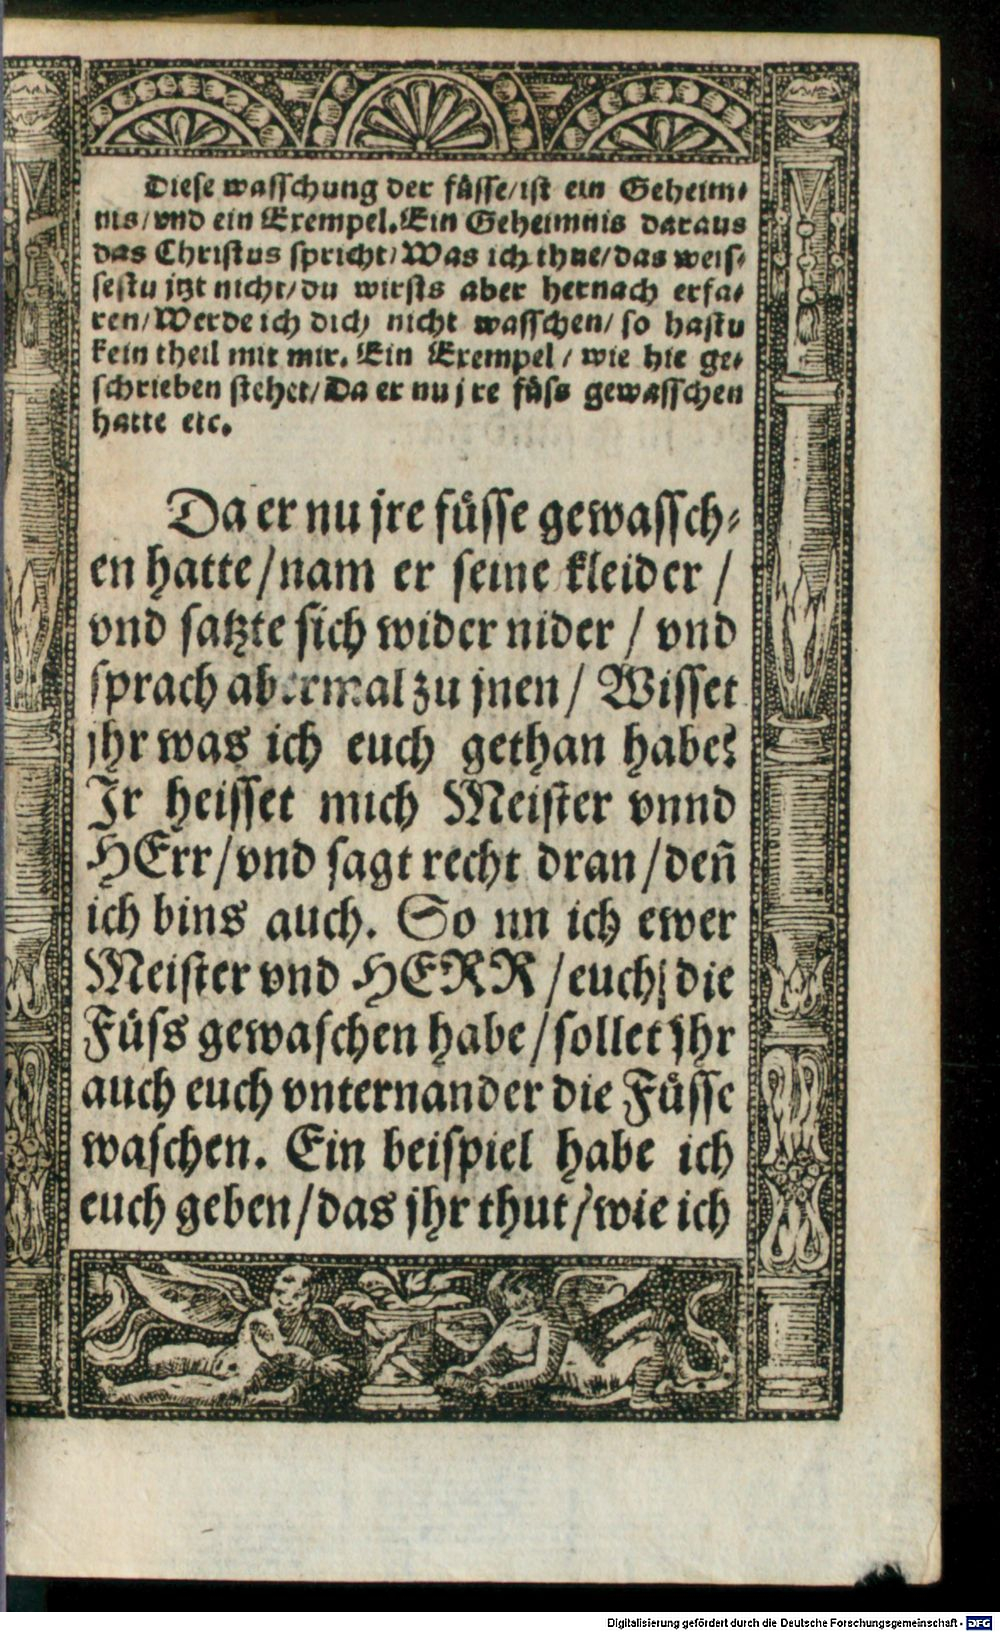 Diese wasschung der füsse/ist ein Geheim⸗
nis/vnd ein Exempel. Ein Geheimnis daraus
das Christus spricht/Was ich thue/das weis⸗
sestu jtzt nicht/du wirsts aber hernach erfa⸗
ren/Werde ich dich nicht wasschen/so hastu
kein theil mit mir. Ein Exempel/wie hie ge⸗
schrieben stehet/Da er nu jre füss gewasschen
hatte etc.
Da er nu jre füsse gewassch⸗
en hatte/nam er seine kleider/
vnd satzte sich wider nider/vnd
sprach abermal zu jnen/Wisset
jhr was ich euch gethan habe?
Jr heisset mich Meister vnnd
HErr/vnd sagt recht dran/deñ
ich bins auch. So nn ich ewer
Meister vnd HERR/euch die
Füss gewaschen habe/sollet jhr
auch euch vnternander die Füsse
waschen. Ein beispiel habe ich
euch geben/das jhr thut/wie ich
Digitalisierung gefördert durch die Deutsche Forschungsgemeinschaft - DFG